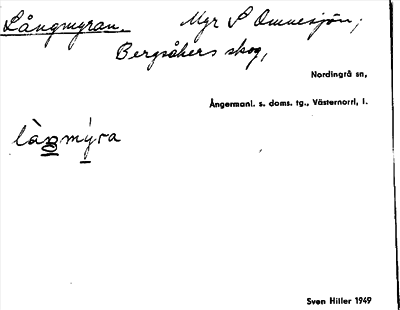 Långmyran. Myr S Omnesjön;
Bergsåkers skog,
Nordingrå sn,
Ångermanl. s. doms. tg., Västernorrl, l.
làŋmýra
Sven Hiller 1949